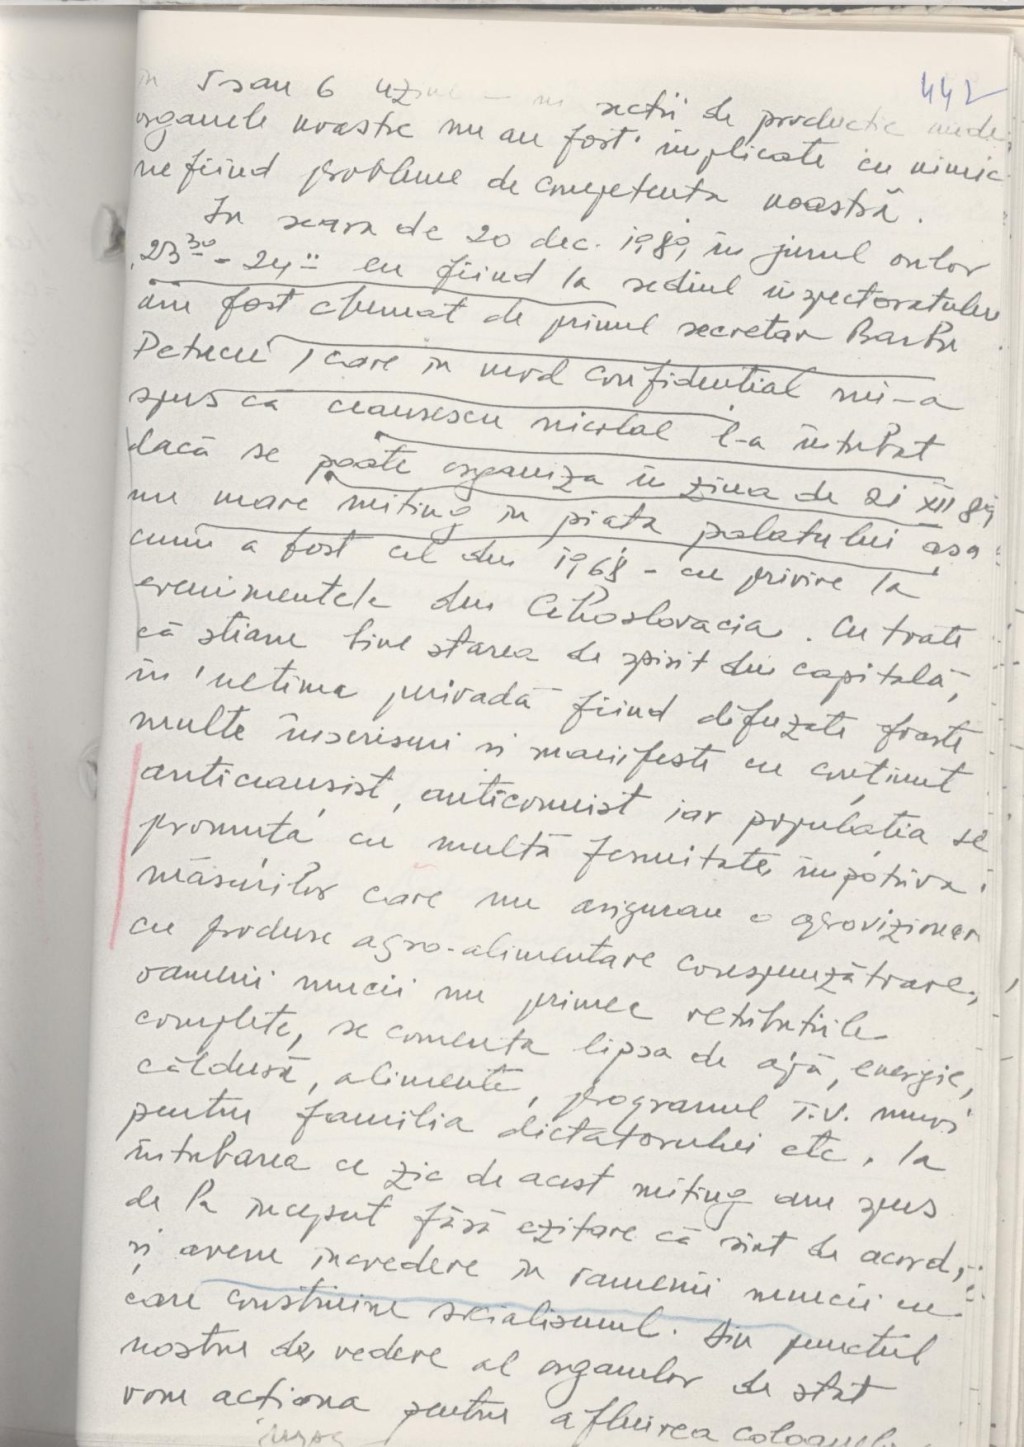 442
în 5 sau 6 uzine secții de producție unde
organele noastre nu au fost implicate cu nimic
nefiind probleme de competența noastră.
In seara de 20 dec. 1989, în jurul orelor
23³⁰ - 24°° eu fiind la sediul inspectoratului
am fost chemat de primul secretar Barbu
Petrescu, care în mod confidențial mi-a
spus că ceausescu nicolae l-a întrebat
dacă se poate organiza în ziua de 21 XII 89
un mare miting în piata palatului asa
cum a fost cel din 1968 - cu privire la
evenimentele din Cehoslovacia. Cu toate
că stiam bine starea de spirit din capitală,
în ultima perioadă fiind difuzate foarte
multe înscrisuri si manifeste cu conținut
anticeausist, anticomunist iar populatia se
pronunta cu multă fermitate împotriva
măsurilor care nu asigurau o aprovizionare
cu produse agro-alimentare corespunzătoare,
oamenii muncii nu primec retributiile
complete, se comenta lipsa de apă, energie,
căldură, alimente, programul T.V. numai
pentru familia dictatorului etc. la
intrebarea ce zic de acest miting am spus
de la inceput fără ezitare că sînt de acord,
si avem incredere in oamenii muncii cu
care construim socialismul. Din punctul
nostru de vedere al organelor de stat
vom actiona pentru afluirea coloanelor